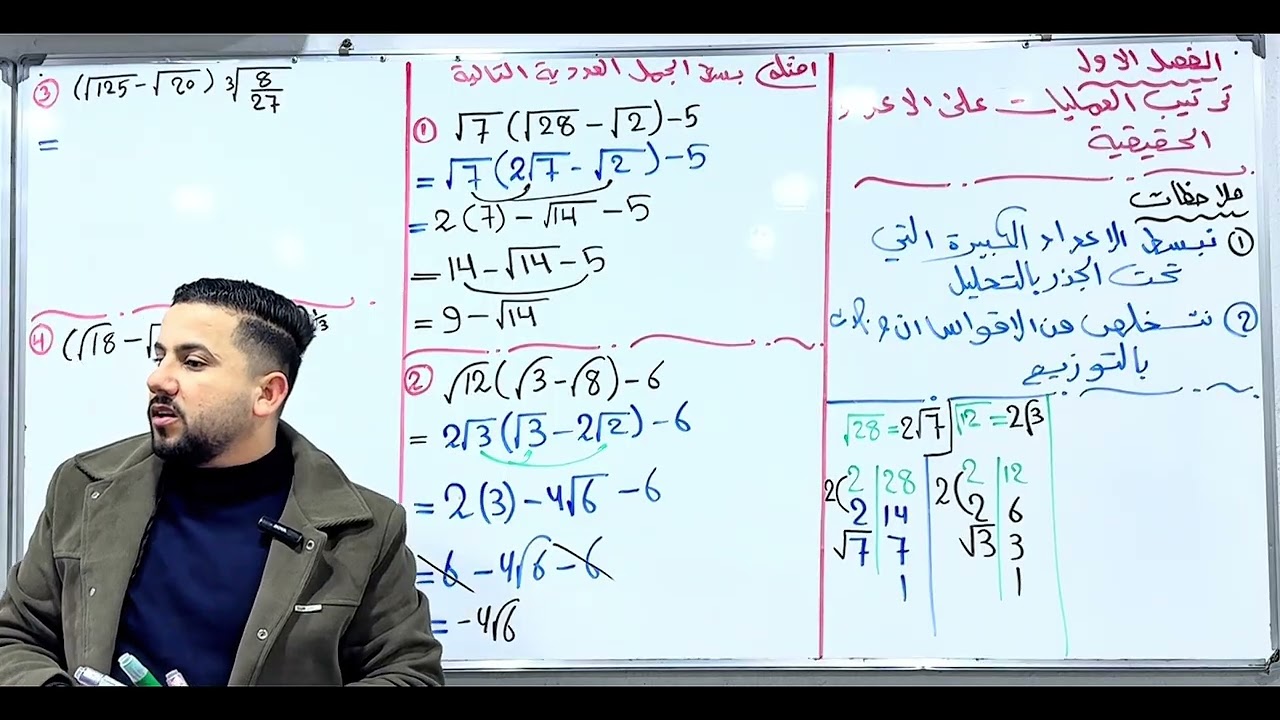 الفصل الاول
ترتيب العمليات على الاعداد
الحقيقية
ملاحظات
① نبسط الاعداد الكبيرة التي
تحت الجذر بالتحليل
② نتخلص من الاقواس ان وجدت
بالتوزيع
√28 = 2√7
2 | 28
2 | 14
√7 | 7
1
2(
√12 = 2√3
2 | 12
2 | 6
√3 | 3
1
2(
امثلة بسط الجمل العددية التالية
① √7 (√28 − √2) − 5
= √7 (2√7 − √2) − 5
= 2(7) − √14 − 5
= 14 − √14 − 5
= 9 − √14
② √12 (√3 − √8) − 6
= 2√3 (√3 − 2√2) − 6
= 2(3) − 4√6 − 6
= 6 − 4√6 − 6
= −4√6
③ (√125 − √20) ∛(8/27)
=
④ (√18 − √